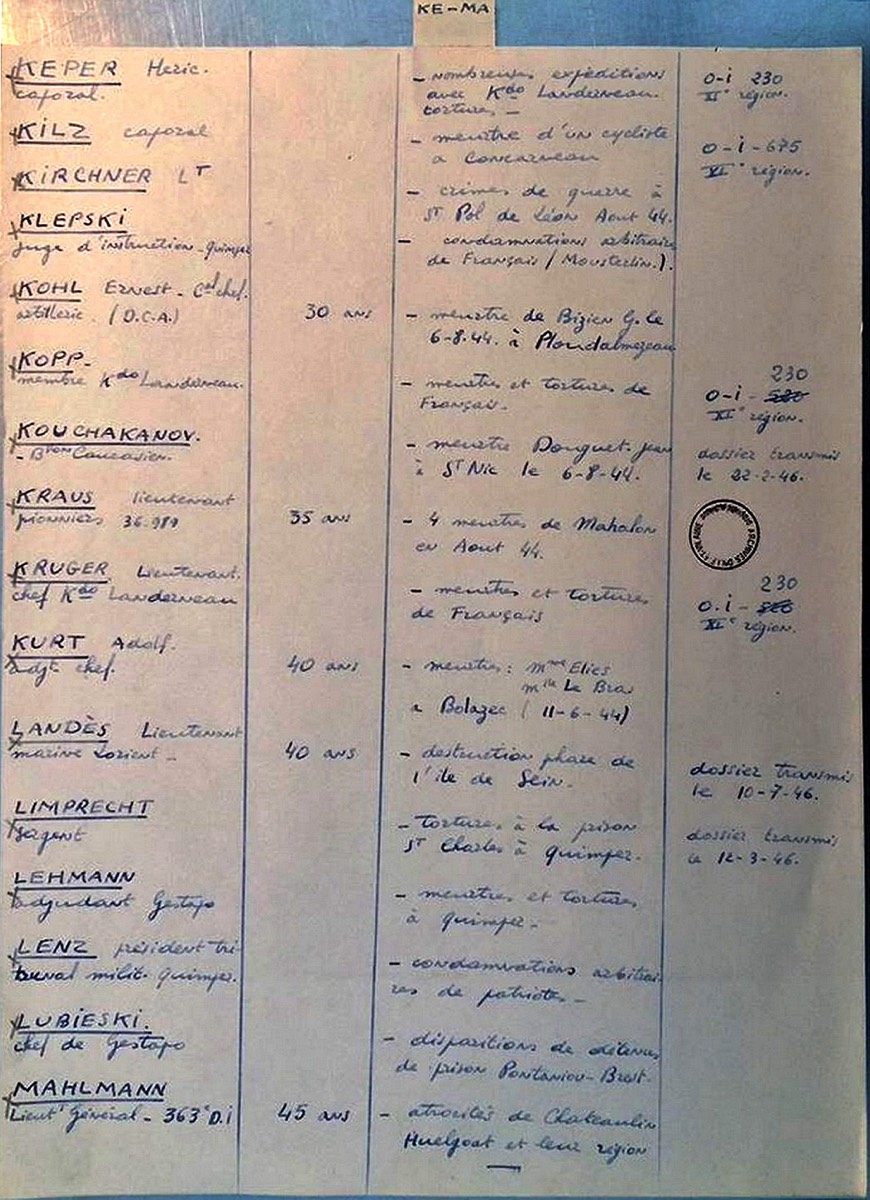 KE-MA
KEPER Heric.
caporal.
- nombreuses expéditions
avec Kdo Landerneau.
tortures -
o-i 230
XIe région.
KILZ caporal
- meurtre d'un cycliste
a Concarneau
o-i-675
XIe région.
KIRCHNER LT
- crimes de guerre à
ST Pol de Léon Aout 44.
KLEPSKI
juge d'instruction-quimper
- condamnations arbitraires
de Français (Mousterlin.).
KOHL Ernest- Cal chef.
artillerie. (D.C.A.)
30 ans
- meurtre de Bizien G. le
6-8-44. à Ploudalmezeau
KOPP-
membre Kdo Landerneau.
- meurtres et tortures de
Français.
230
o-i - 520
XIe région.
KOUCHAKANOV.
- Bton Caucasien.
- meurtre Donguet-Jean
à ST Nic le 6-8-44.
dossier transmis
le 22-2-46.
KRAUS lieutenant
pionniers 36.989
35 ans
- 4 meurtres de Mahalon
en Aout 44.
KRUGER Lieutenant.
chef Kdo Landerneau
- meurtres et tortures
de Français
230
o.i -
XIe région.
KURT Adolf.
adjt chef.
40 ans
- meurtres: Mme Elies
Mlle Le Bras
a Bolazec (11-6-44)
LANDÈS Lieutenant
marine Lorient -
40 ans
- destruction phare de
l'ile de Sein.
dossier transmis
le 10-7-46.
LIMPRECHT
sergent
- tortures à la prison
ST Charles à quimper.
dossier transmis
le 12-3-46.
LEHMANN
adjudant Gestapo
- meurtres et tortures
à quimper.
LENZ président tri-
bunal milit. quimper.
- condamnations arbitrai-
res de patriotes -
LUBIESKI.
chef de Gestapo
- disparitions de détenus
de prison Pontaniou-Brest.
MAHLMANN
Lieutt Général - 363e D.I
45 ans
- atrocités de Chateaulin
Huelgoat et leur région